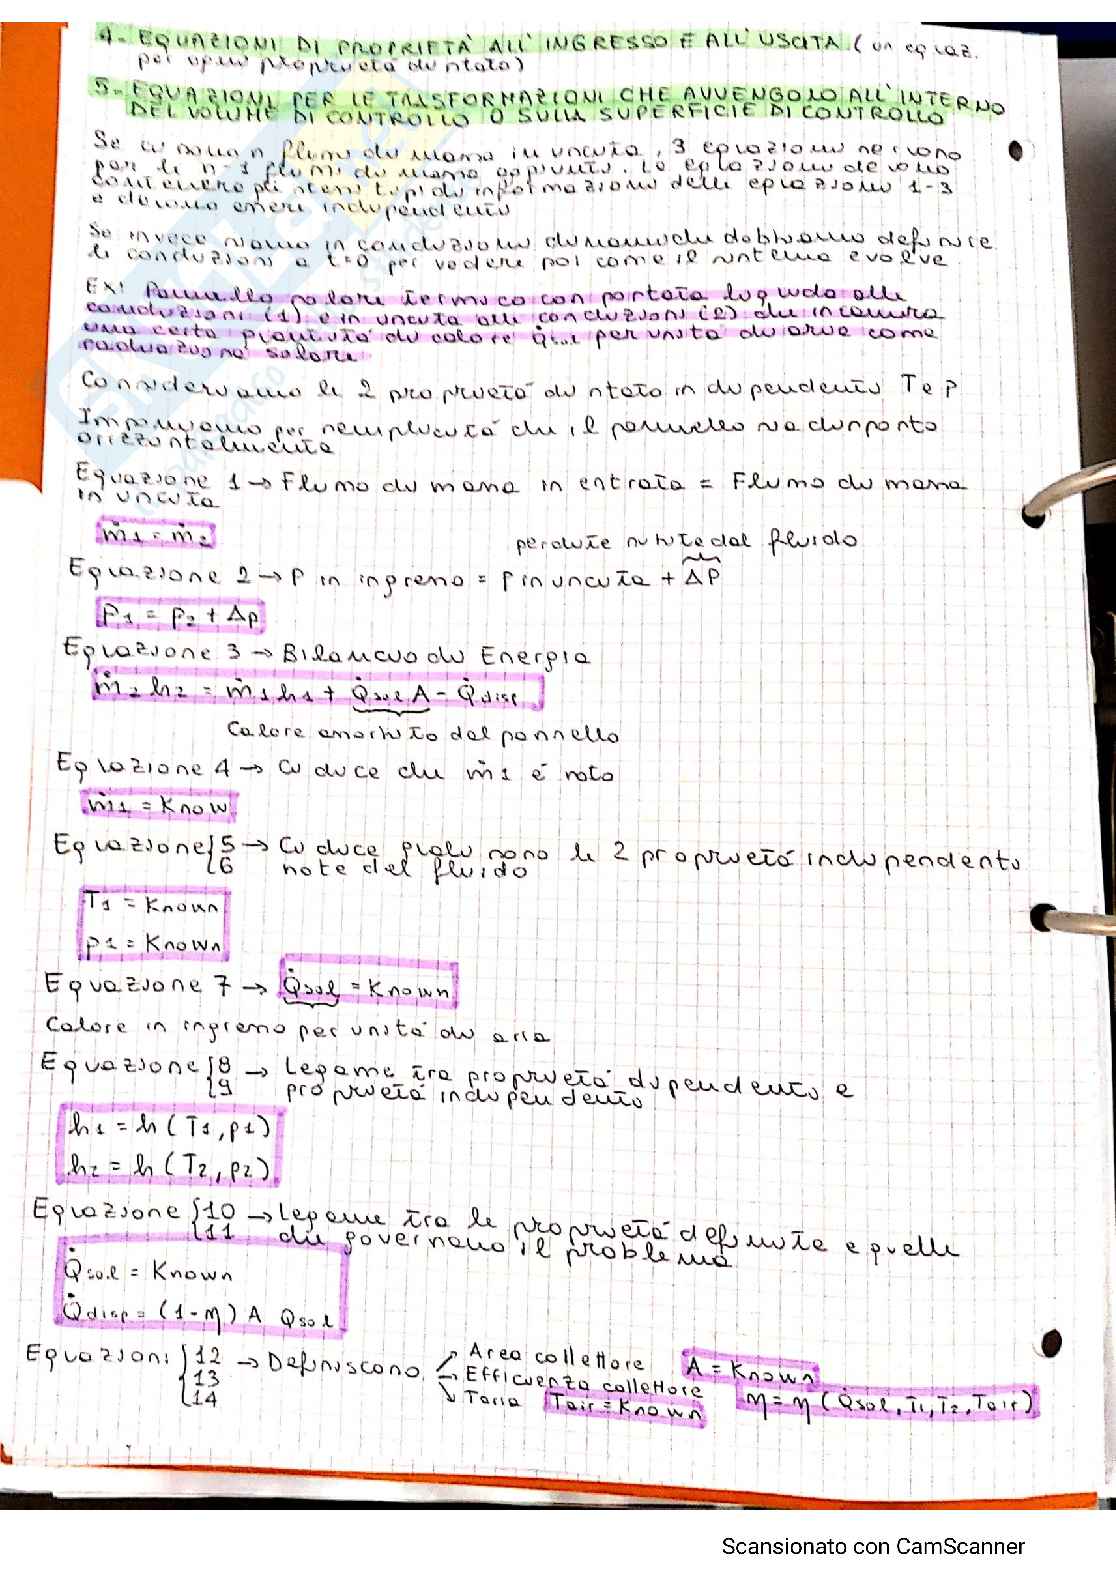 4- EQUAZIONI DI PROPRIETÀ ALL'INGRESSO E ALL'USCITA (un equaz.
per ogni proprietà di stato)
5- EQUAZIONI PER LE TRASFORMAZIONI CHE AVVENGONO ALL'INTERNO
DEL VOLUME DI CONTROLLO O SULLA SUPERFICIE DI CONTROLLO
Se ci sono n flussi di massa in uscita, 3 equazioni servono
per gli n-1 flussi di massa aggiunti. Le equazioni devono
contenere gli stessi tipi di informazioni delle equazioni 1-3
e devono essere indipendenti
Se invece siamo in condizioni dinamiche dobbiamo definire
le condizioni a t=0 per vedere poi come il sistema evolve
Ex: Pannello solare termico con portata liquido alle
condizioni (1) e in uscita alle condizioni (2) che incamera
una certa quantità di calore Q̇sol per unità di area come
radiazione solare
Consideriamo le 2 proprietà di stato indipendenti T e P
Imponiamo per semplicità che il pannello sia disposto
orizzontalmente
Equazione 1 → Flusso di massa in entrata = Flusso di massa
in uscita
ṁ1 = ṁ2
perdite subite dal fluido
Equazione 2 → P in ingresso = P in uscita + ΔP
P1 = P2 + Δp
Equazione 3 → Bilancio di Energia
ṁ2 h2 = ṁ1 h1 + Q̇sol A - Q̇disp
Calore assorbito dal pannello
Equazione 4 → Ci dice che ṁ1 è noto
ṁ1 = Know
Equazione {5 → Ci dice quali sono le 2 proprietà indipendenti
{6 note del fluido
T1 = Known
p1 = Known
Equazione 7 → Q̇sol = Known
Calore in ingresso per unità di area
Equazione {8 → Legame tra proprietà dipendenti e
{9 proprietà indipendenti
h1 = h (T1, p1)
h2 = h (T2, p2)
Equazione {10 → Legame tra le proprietà definite e quelle
{11 che governano il problema
Q̇sol = Known
Q̇disp = (1-η) A Qsol
Equazioni {12 → Definiscono Area collettore A = Known
{13 Efficienza collettore η = η (Q̇sol, T1, T2, Tair)
{14 Taria Tair = Known
Scansionato con CamScanner